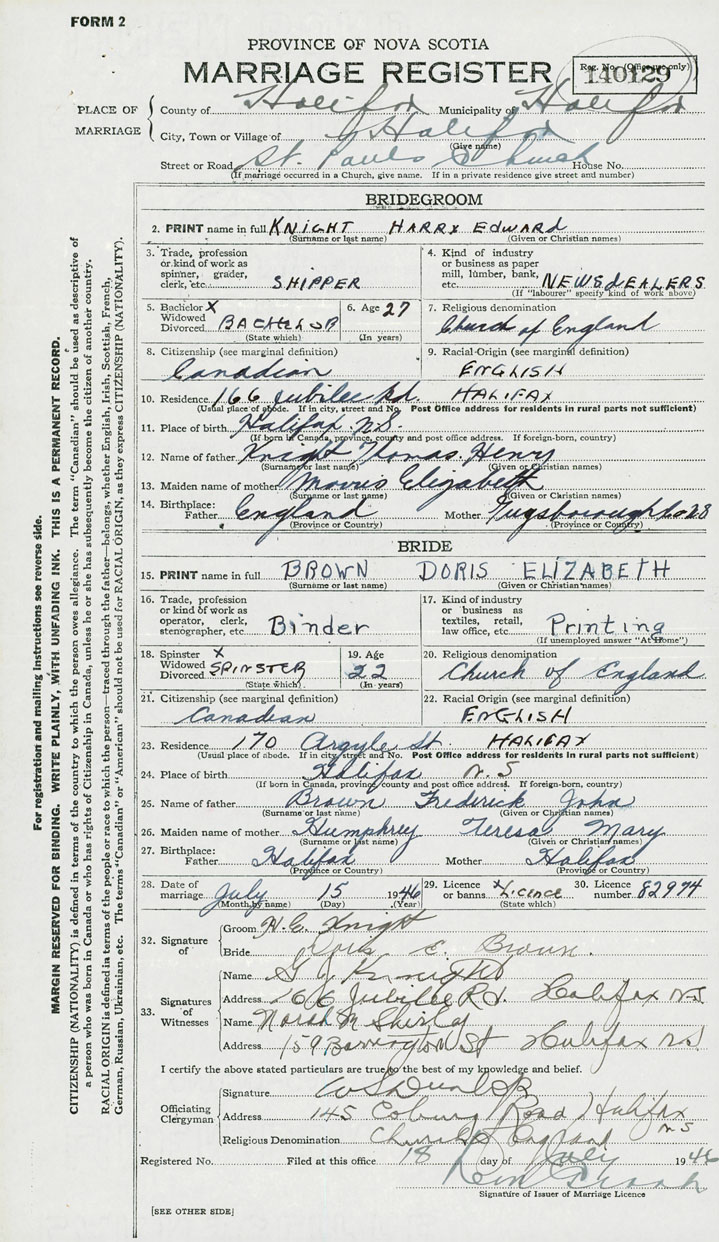 FORM 2
PROVINCE OF NOVA SCOTIA
MARRIAGE REGISTER
Reg. No. (Office use only)
140129
PLACE OF MARRIAGE
County of Halifax Municipality of Halifax
City, Town or Village of Halifax
(Give name)
Street or Road St. Pauls Church House No.
(If marriage occurred in a Church, give name. If in a private residence give street and number)
BRIDEGROOM
2. PRINT name in full KNIGHT HARRY EDWARD
(Surname or last name) (Given or Christian names)
3. Trade, profession or kind of work as spinner, grader, clerk, etc. SHIPPER
4. Kind of industry or business as paper mill, lumber, bank, etc. NEWSDEALERS
(If "labourer" specify kind of work above)
5. Bachelor X Widowed Divorced BACHELOR
(State which)
6. Age 27
(In years)
7. Religious denomination
Church of England
8. Citizenship (see marginal definition)
Canadian
9. Racial Origin (see marginal definition)
ENGLISH
10. Residence 166 Jubilee Rd. HALIFAX
(Usual place of abode. If in city, street and No. Post Office address for residents in rural parts not sufficient)
11. Place of birth Halifax N.S.
(If born in Canada, province, county and post office address. If foreign-born, country)
12. Name of father Knight Thomas Henry
(Surname or last name) (Given or Christian names)
13. Maiden name of mother Morris Elizabeth
(Surname or last name) (Given or Christian names)
14. Birthplace: Father England Mother
(Province or Country) (Province or Country)
BRIDE
15. PRINT name in full BROWN DORIS ELIZABETH
(Surname or last name) (Given or Christian names)
16. Trade, profession or kind of work as operator, clerk, stenographer, etc. Binder
17. Kind of industry or business as textiles, retail, law office, etc. Printing
(If unemployed answer "At Home")
18. Spinster X Widowed Divorced SPINSTER
(State which)
19. Age 22
(In years)
20. Religious denomination
Church of England
21. Citizenship (see marginal definition)
Canadian
22. Racial Origin (see marginal definition)
ENGLISH
23. Residence 170 Argyle St. HALIFAX
(Usual place of abode. If in city, street and No. Post Office address for residents in rural parts not sufficient)
24. Place of birth Halifax N.S
(If born in Canada, province, county and post office address. If foreign-born, country)
25. Name of father Brown Frederick John
(Surname or last name) (Given or Christian names)
26. Maiden name of mother Humphrey Teresa Mary
(Surname or last name) (Given or Christian names)
27. Birthplace: Father Halifax Mother Halifax
(Province or Country) (Province or Country)
28. Date of marriage July 15 1946
(Month by name) (Day) (Year)
29. Licence or banns X Licence
(State which)
30. Licence number 82974
32. Signature of
Groom H. E. Knight
Bride Doris E. Brown.
33. Signatures of Witnesses
Name G J Knight
Address 166 Jubilee Rd. Halifax N.S
Name Norah M Shirley
Address 159 Barrington St Halifax N.S.
I certify the above stated particulars are true to the best of my knowledge and belief.
Officiating Clergyman
Signature W S Dunlop
Address 145 Coburg Road Halifax N S
Religious Denomination Church of England
Registered No. Filed at this office 18 day of July 1946
Signature of Issuer of Marriage Licence
[SEE OTHER SIDE]
For registration and mailing instructions see reverse side.
MARGIN RESERVED FOR BINDING. WRITE PLAINLY, WITH UNFADING INK. THIS IS A PERMANENT RECORD.
CITIZENSHIP (NATIONALITY) is defined in terms of the country to which the person owes allegiance. The term "Canadian" should be used as descriptive of
a person who was born in Canada or who has rights of Citizenship in Canada, unless he or she has subsequently become the citizen of another country.
RACIAL ORIGIN is defined in terms of the people or race to which the person—traced through the father—belongs, whether English, Irish, Scottish, French,
German, Russian, Ukrainian, etc. The terms "Canadian" or "American" should not be used for RACIAL ORIGIN, as they express CITIZENSHIP (NATIONALITY).